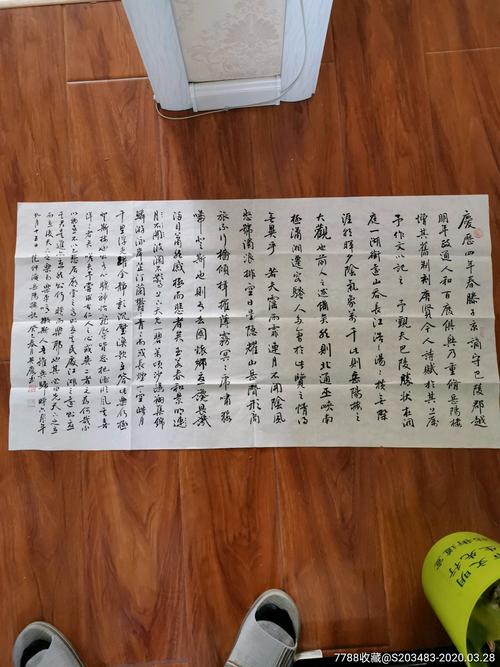 慶曆四年春滕子京謫守巴陵郡越
明年政通人和百廢俱興乃重修岳陽樓
增其舊制刻唐賢今人詩賦於其上屬
予作文以記之 予觀夫巴陵勝狀在洞
庭一湖銜遠山吞長江浩浩湯湯橫無際
涯朝暉夕陰氣象萬千此則岳陽樓之
大觀也前人之述備矣然則北通巫峽南
極瀟湘遷客騷人多會於此覽物之情得
無異乎 若夫霪雨霏霏連月不開陰風
怒號濁浪排空日星隱耀山岳潛形商
旅不行檣傾楫摧薄暮冥冥虎嘯猿
啼登斯樓也則有去國懷鄉憂讒畏譏
滿目蕭然感極而悲者矣至若春和景明
上下天光一碧萬頃沙鷗翔集錦
鱗游泳岸芷汀蘭郁郁青青而或長煙一空皓月
千里浮光躍金靜影沉璧漁歌互答此樂何極
登斯樓也則有心曠神怡寵辱偕忘把酒臨風其喜
洋洋者矣嗟夫予嘗求古仁人之心或異二者之為何哉不
以物喜不以己悲居廟堂之高則憂其民處江湖之遠則憂
九月十五日 范仲淹岳陽樓記
文明
7788收藏@S203483-2020.03.28